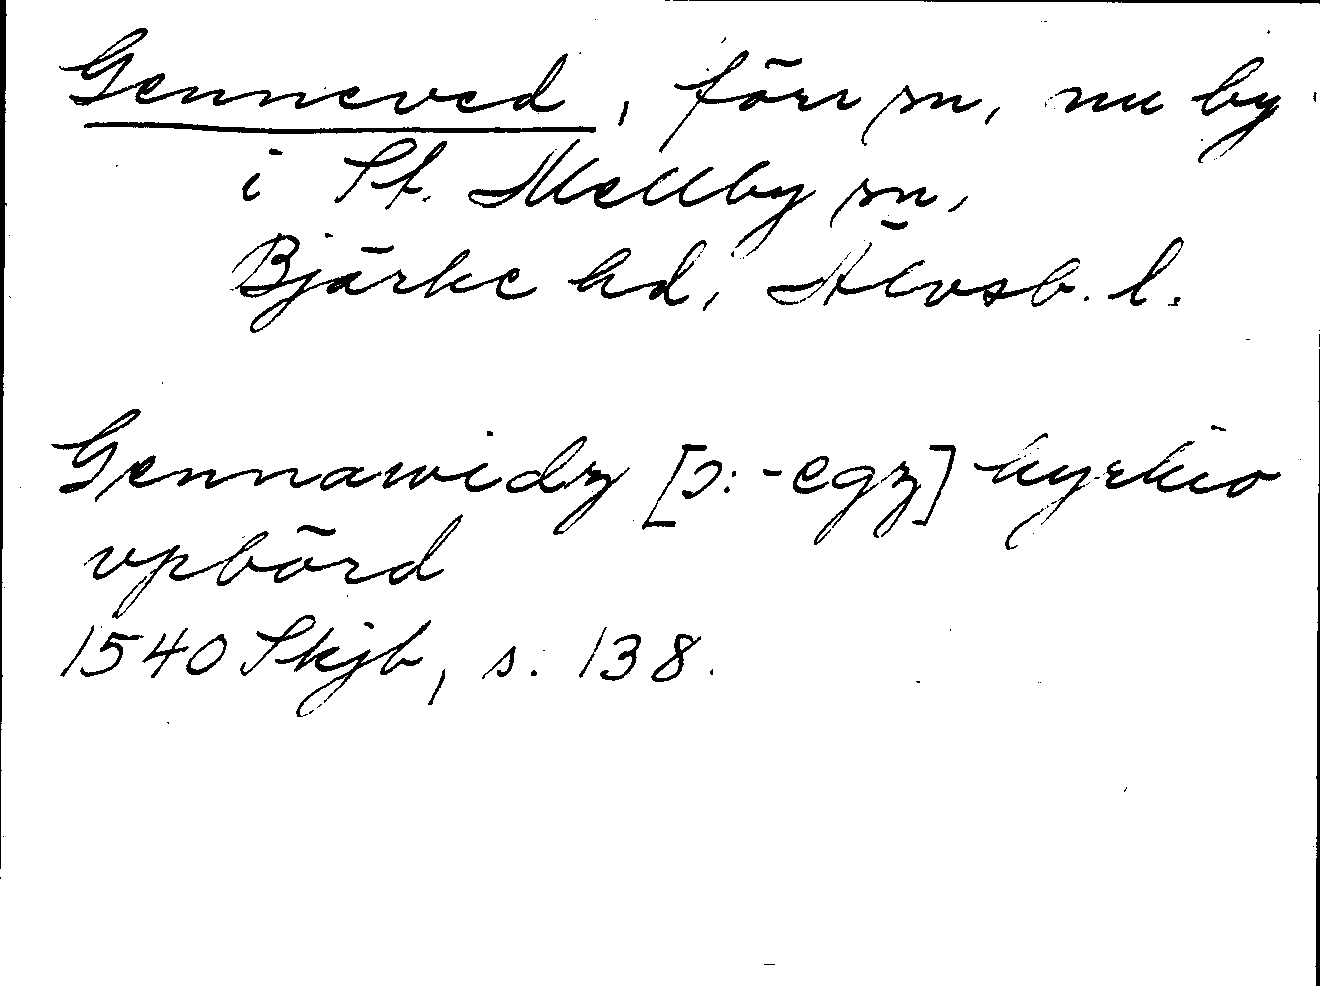 Genneved, förr sn, nu by
i St. Mellby sn,
Bjärke hd, Älvsb. l.
Gennawidz [ɔ: -egz] kyrkio
vpbörd
1540 Skjb, s. 138.